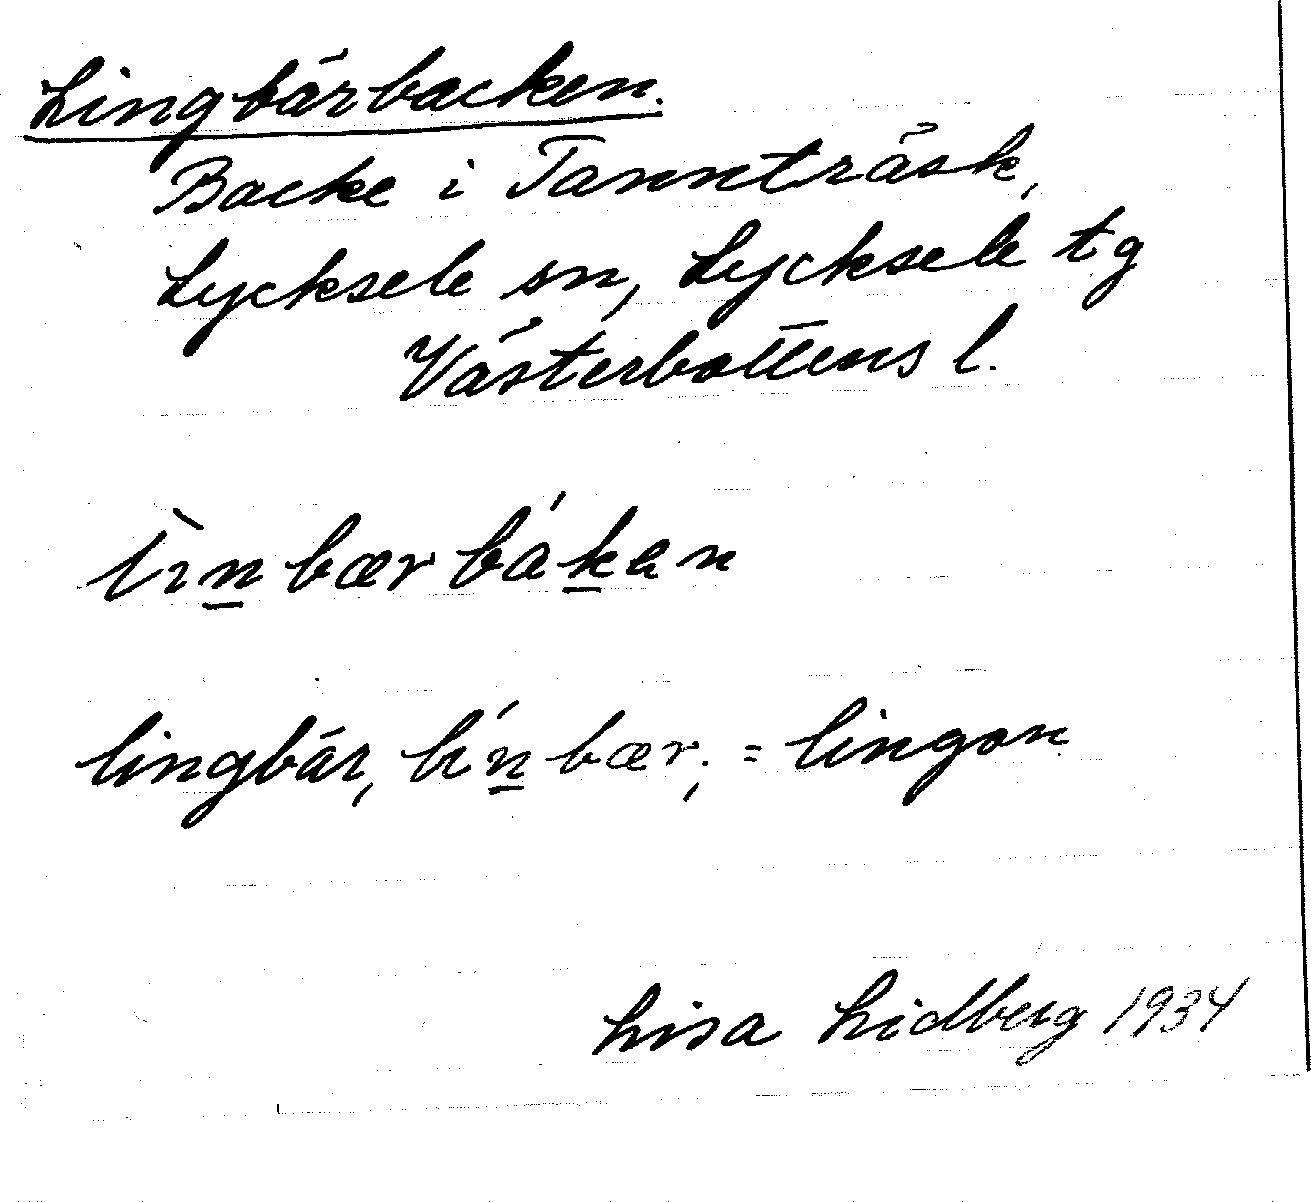 Lingbärbacken.
Backe i Tannträsk,
Lycksele sn, Lycksele tg
Västerbottens l.
lìn̲bærbák̲an
lingbär, lín̲bær, = lingon
Lisa Lidberg 1934